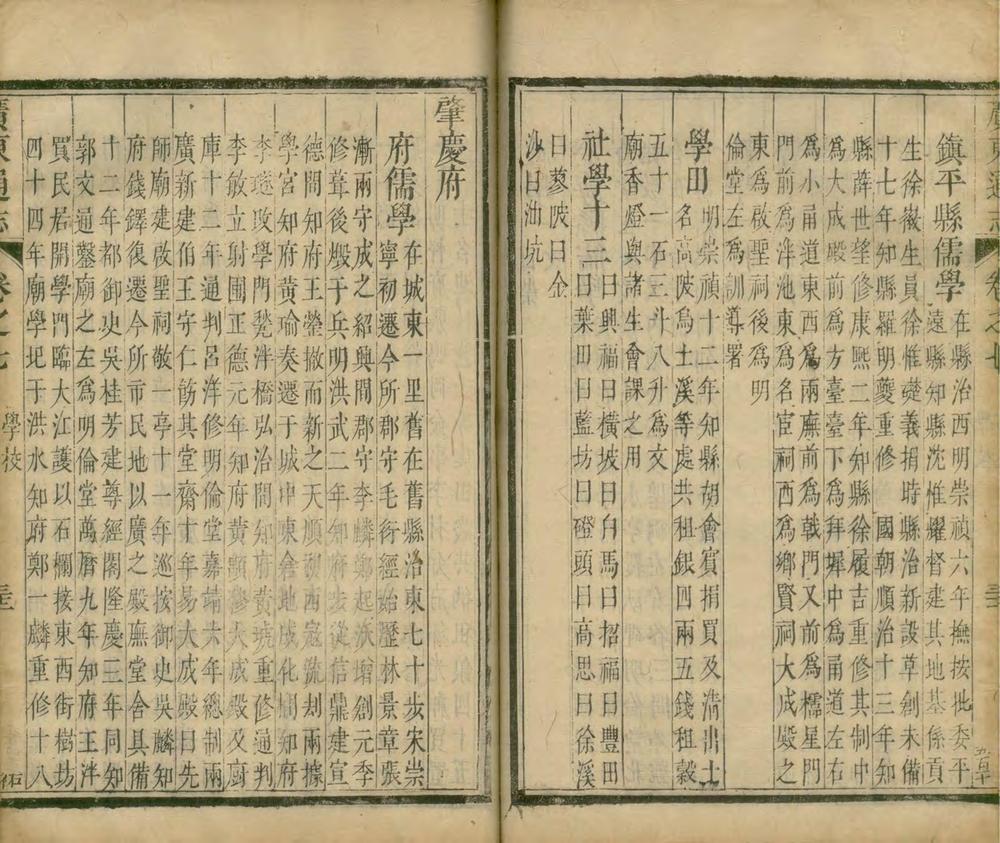 鎮平縣儒學在縣治西明崇禎六年撫按批委平
遠縣知縣沈惟耀督建其地基係貢
生徐𡽪生員徐惟𪩘義捐時縣治新設草創未備
十七年知縣羅明夔重修 國朝順治十三年知
縣薛世望修康熙二年知縣徐履吉重修其制中
為大成殿前為方臺臺下為拜墀中為甬道左右
為小甬道東西為兩廡前為戟門又前為櫺星門
門前為泮池東為名宦祠西為鄉賢祠大成殿之
東為啟聖祠後為明
倫堂左為訓導署
學田明崇禎十二年知縣胡會賓捐買及清出土
名高陂烏土溪等處共租銀四兩五錢租穀
五十一石三斗八升為文
廟香燈與諸生會課之用
社學十三曰興福曰橫坡曰白馬曰招福曰豐田
曰葉田曰藍坊曰磴頭曰高思曰徐溪
曰蓼陂曰金
沙曰油坑
肇慶府
府儒學在城東一里舊在舊縣治東七十步宋崇
寧初遷今所郡守毛衍經始歷林景章張
漸兩守成之紹興間郡守李麟鄭起沃增創元季
修葺後燬于兵明洪武二年知府步從信鼎建宣
德間知府王瑩撤而新之天順初西寇流刦兩據
學宮知府黃瑜奏遷于城中東倉地成化間知府
李璲改學門甃泮橋弘治間知府黃琥重修通判
李敏立射圃正德元年知府黃顯修大成殿及廚
庫十二年通判呂洋修明倫堂嘉靖六年總制兩
廣新建伯王守仁飭其堂齋十年易大成殿曰先
師廟建啟聖祠敬一亭十一年巡按御史吳麟知
府錢鐸復遷今所市民地以廣之殿廡堂舍具備
十二年都御史吳桂芳建尊經閣隆慶三年同知
郭文通鑿廟之左為明倫堂萬曆九年知府王泮
買民居開學門臨大江護以石欄接東西街樹坊
四十四年廟學圮于洪水知府鄭一麟重修十八
廣東通志
卷之七
學校